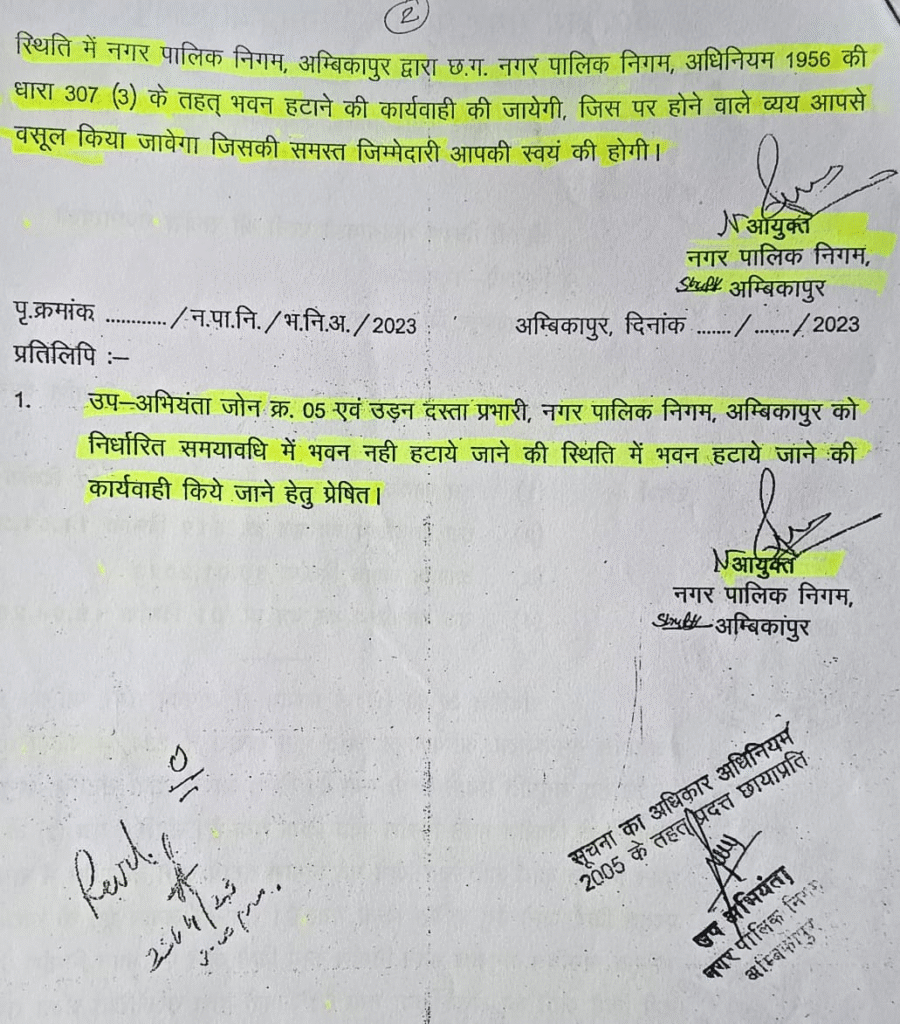 2
स्थिति में नगर पालिक निगम, अम्बिकापुर द्वारा छ.ग. नगर पालिक निगम, अधिनियम 1956 की
धारा 307 (3) के तहत् भवन हटाने की कार्यवाही की जायेगी, जिस पर होने वाले व्यय आपसे
वसूल किया जावेगा जिसकी समस्त जिम्मेदारी आपकी स्वयं की होगी।
आयुक्त
नगर पालिक निगम,
अम्बिकापुर
पृ.क्रमांक ............/न.पा.नि./भ.नि.अ./2023 अम्बिकापुर, दिनांक ......./......../2023
प्रतिलिपि :–
1. उप–अभियंता जोन क्र. 05 एवं उड़न दस्ता प्रभारी, नगर पालिक निगम, अम्बिकापुर को
निर्धारित समयावधि में भवन नही हटाये जाने की स्थिति में भवन हटाये जाने की
कार्यवाही किये जाने हेतु प्रेषित।
आयुक्त
नगर पालिक निगम,
अम्बिकांपुर
सूचना का अधिकार अधिनियम
2005 के तहत् प्रदत्त छायाप्रति
उप अभियंता
नगर पालिक निगम
अम्बिकापुर